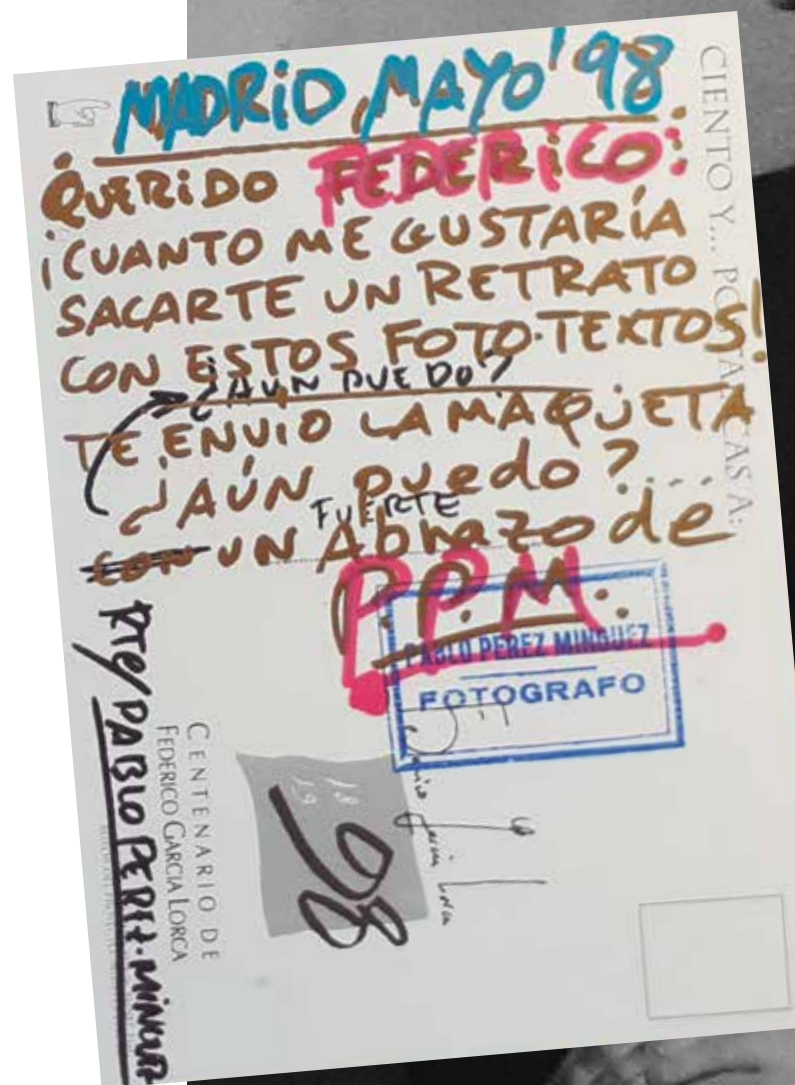 MADRiD, MAYO '98
QUERiDO FEDERiCO:
¡CUANTO ME GUSTARÍA
SACARTE UN RETRATO
CON ESTOS FOTO-TEXTOS!
¿AUN PUEDO?
TE ENVIO LA MAQUETA
¿AÚN puedo?...
FUERTE
CON UN Abrazo de
P.P.M.
PABLO PEREZ MINGUEZ
FOTOGRAFO
RTe/ PABLO PEREZ-MINGUEZ
CIENTO Y... POSTALICAS A:
CENTENARIO DE
FEDERICO GARCÍA LORCA
18
19
98
Federico García Lorca